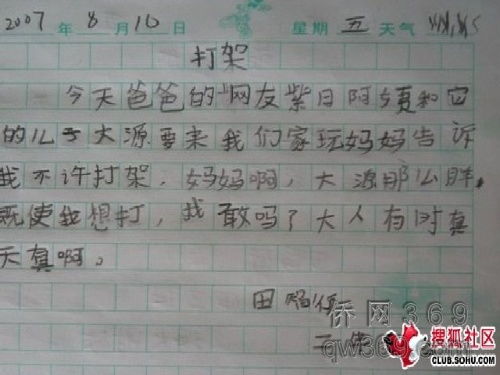 2007年8月10日 星期五 天气
打架
今天爸爸的网友紫日阿姨和它
的儿子大源要来我们家玩妈妈告诉
我不许打架，妈妈啊，大源那么胖，
既使我想打，我敢吗了大人有时真
天真啊。
田
侨网369
qw369.com
搜狐社区
CLUB.SOHU.COM